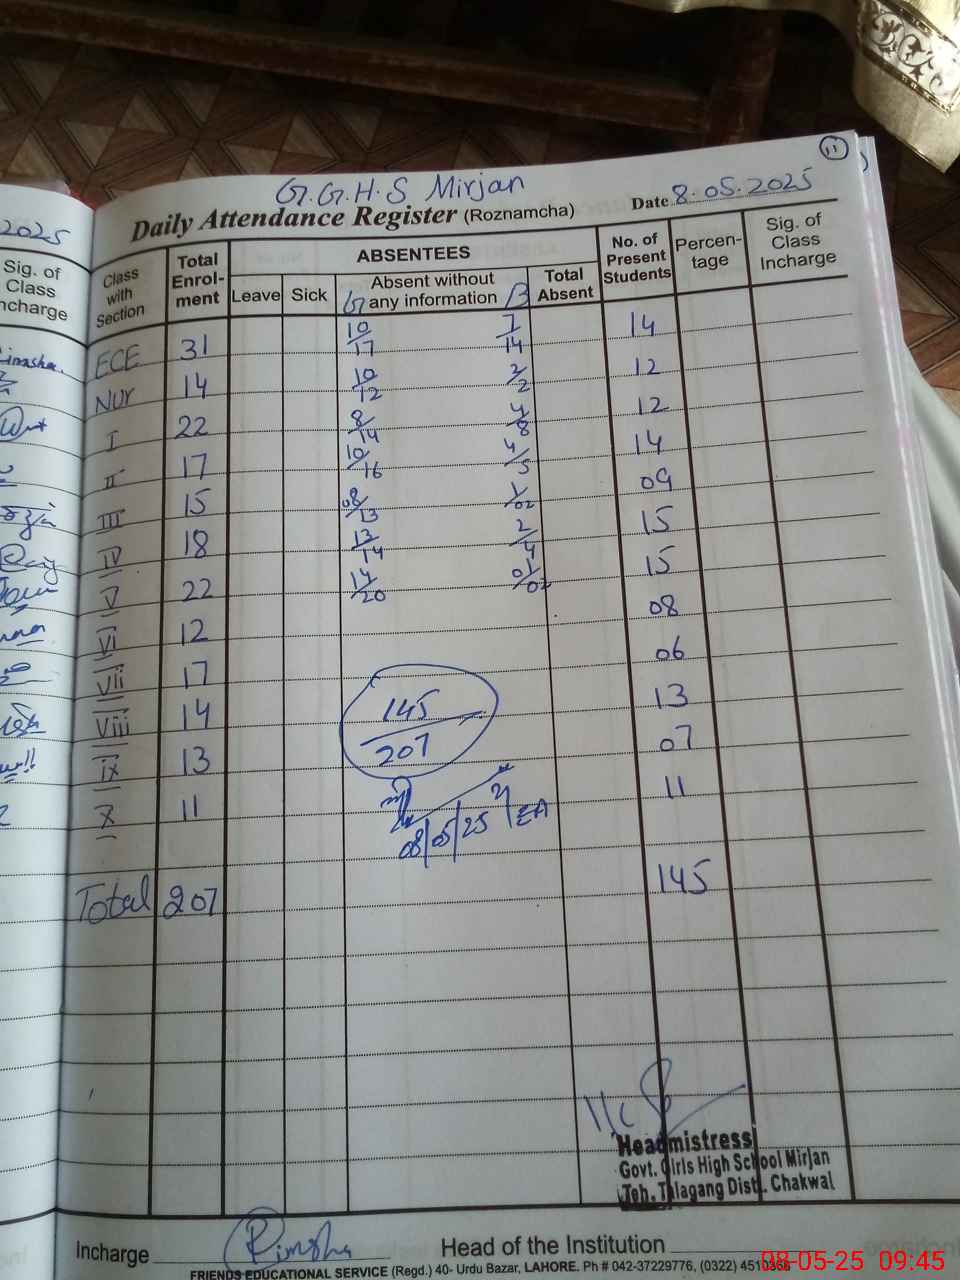 11
G.G.H.S Mirjan
Daily Attendance Register (Roznamcha) Date 8.05.2025
2025
Sig. of Class Incharge
Class with Section
Total Enrol-ment
ABSENTEES
Leave
Sick
Absent without any information
G B
Total Absent
No. of Present Students
Percen-tage
Sig. of Class Incharge
ECE 31 10/17 7/14 14
Nur 14 10/12 2/2 12
I 22 8/14 4/8 12
II 17 10/16 4/5 14
III 15 08/13 1/02 09
IV 18 13/14 2/4 15
V 22 14/20 01/02 15
VI 12 08
VII 17 06
VIII 14 13
IX 13 07
X 11 11
145/207
08/05/25
Total 207 145
Headmistress
Govt. Girls High School Mirjan
Teh. Talagang Dist. Chakwal
Incharge Rimsha Head of the Institution
FRIENDS EDUCATIONAL SERVICE (Regd.) 40- Urdu Bazar, LAHORE. Ph # 042-37229776, (0322) 4510356
08-05-25 09:45